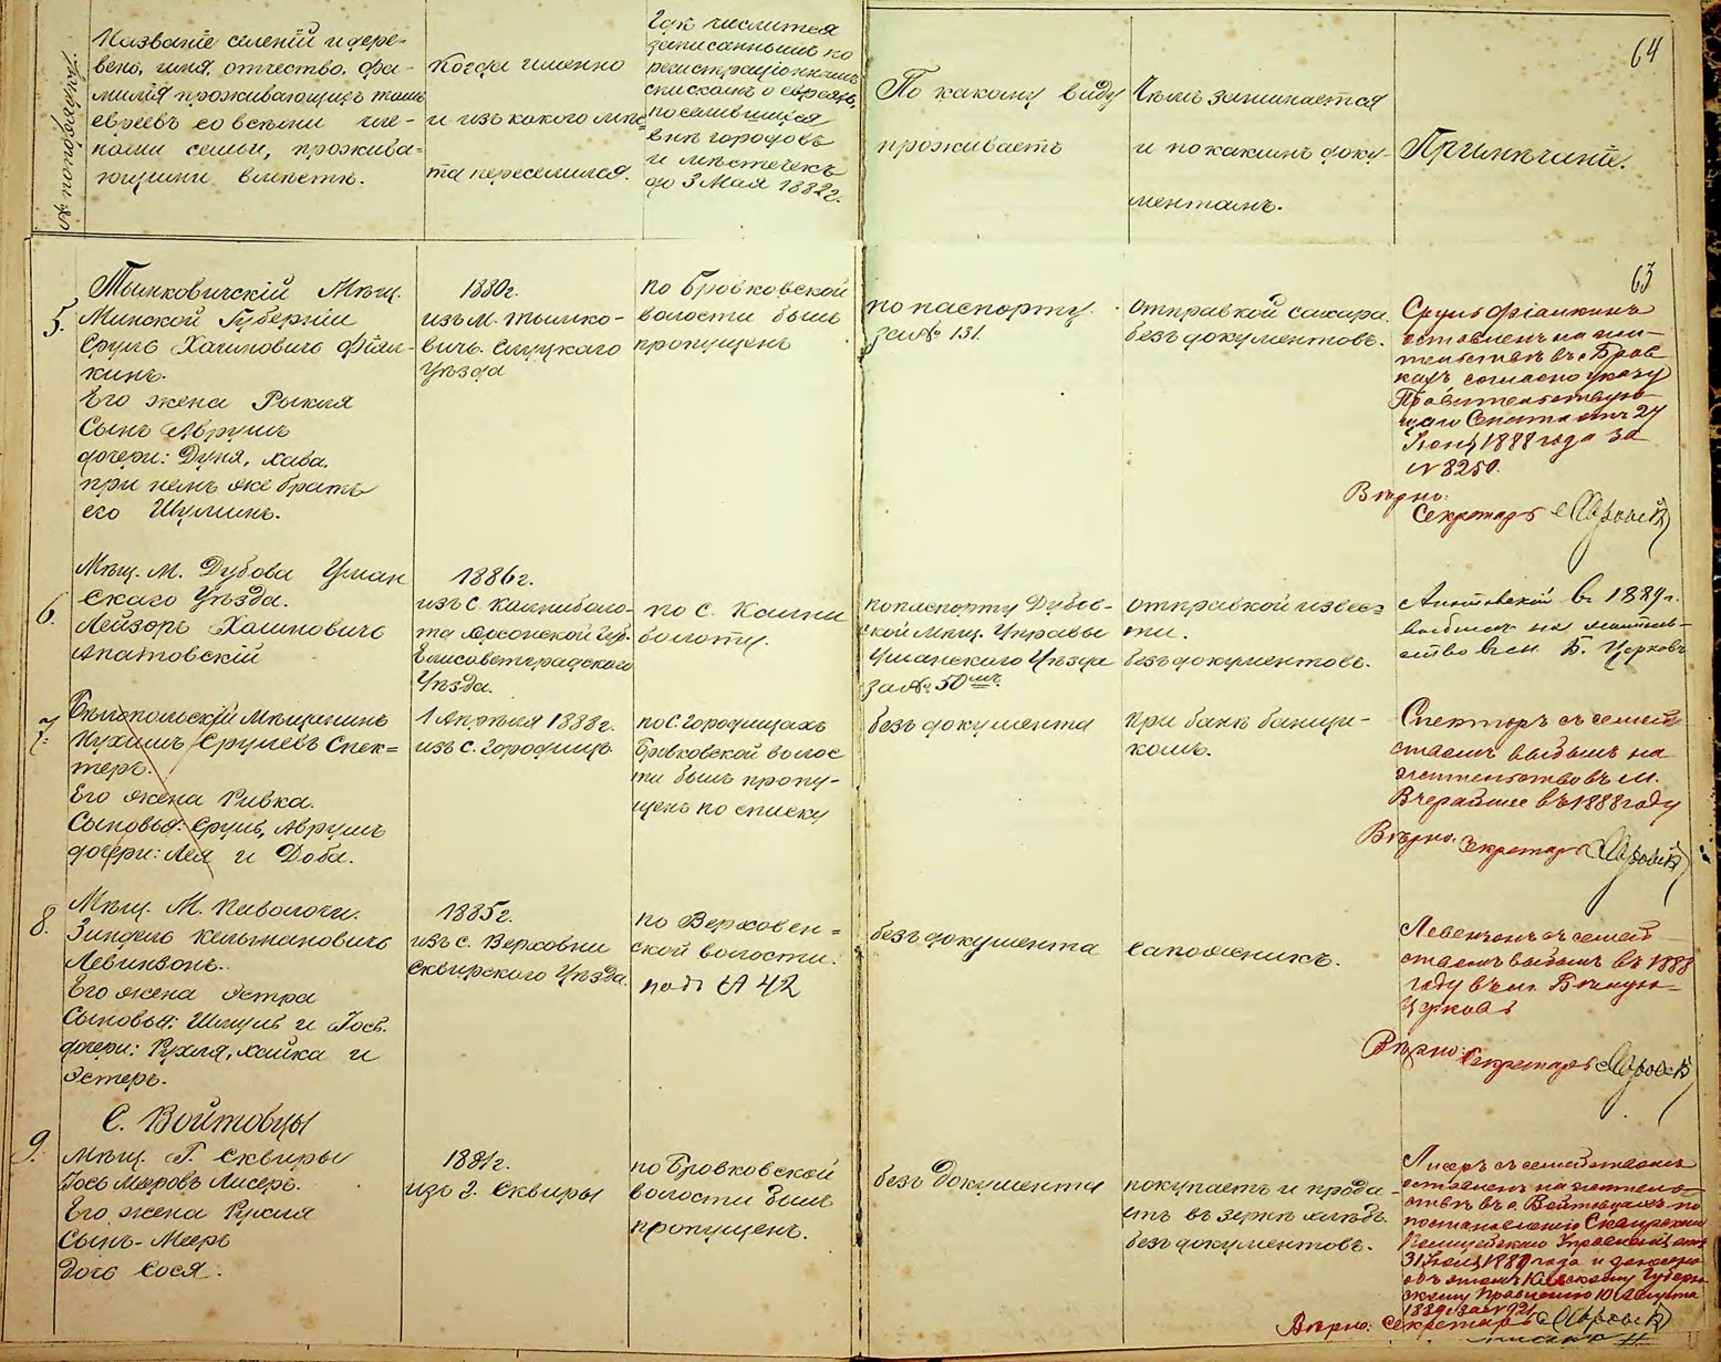 № по порядку.
Названіе селеній и дере-
вень, имя, отчество, фа-
милія проживающихъ тамъ
евреевъ со всѣми чле-
нами семьи, прожива-
ющими вмѣстѣ.
Когда именно
и изъ какого мѣс-
та переселился.
Гдѣ числится
записаннымъ по
регистраціоннымъ
спискамъ о евреяхъ,
поселившихся
внѣ городовъ
и мѣстечекъ
до 3 Мая 1882 г.
По какому виду
проживаетъ
Чѣмъ занимается
и по какимъ доку-
ментамъ.
Примѣчаніе.
64
63
5.
Тымковичскій Мѣщ.
Минской Губерніи
Сруль Хаимовичъ Фіал-
кинъ.
Его жена Рыкля
Сынъ Аврумъ
дочери: Дуня, Хава.
при немъ же братъ
его Шулимъ.
1880 г.
изъ м. Тымко-
вичъ. Слуцкаго
уѣзда
по Бровковской
волости былъ
пропущенъ
по паспорту.
за № 131.
отправкой сахара.
безъ документовъ.
Сруль Фіалкинъ
оставленъ на жи-
тельствѣ въ с. Бров
кахъ согласно указу
Правительствую-
щаго Сената отъ 24
Іюня 1888 года за
№ 8250.
Вѣрно:
Секретарь
6.
Мѣщ. М. Дубова Уман
скаго Уѣзда.
Лейзоръ Хаимовичъ
Апатовскій
1886 г.
изъ с. Каинболо-
та Херсонской Губ.
Елисаветградскаго
Уѣзда.
по с. Каини
болоту.
по паспорту Дубов-
ской Мѣщ. Управы
Уманскаго Уѣзда
за № 50
отправкой извес-
ти.
безъ документовъ.
Апатовскій въ 1889 г.
выбылъ на житель-
ство въ м. Б. Церковь
7.
Бѣлопольскій Мѣщанинъ
Нухимъ Срулевъ Спек-
теръ.
Его жена Ривка.
Сыновья: Сруль, Аврумъ
дочери: Лея и Доба.
1 Апрѣля 1888 г.
изъ с. Городищъ
по с. Городищахъ
Бровковской волос
ти былъ пропу-
щенъ по списку
безъ документа
при банѣ банщи-
комъ.
Спекторъ съ семей
ствомъ выбылъ на
жительство въ м.
Вчерайше въ 1888 году
Вѣрно. Секретарь
8.
Мѣщ. М. Паволочи.
Зинделъ Кельмановичъ
Левинзонъ.
Его жена Эстра
Сыновья: Шмуль и Іось.
дочери: Рухля, Хайка и
Эстеръ.
1885 г.
изъ с. Верховни
Сквирскаго Уѣзда.
по Верховен-
ской волости.
подъ № 42
безъ документа
сапожникъ.
Левензонъ съ семей
ствомъ выбылъ въ 1888
году въ м. Бѣлую-
Церковь
Вѣрно: Секретарь
С. Войтовцы
9.
Мѣщ. Г. Сквиры
Іось Мееровъ Лисеръ.
Его жена Рукля
Сынъ - Мееръ
Дочь Сося.
1881 г.
изъ г. Сквиры
по Бровковской
волости былъ
пропущенъ.
безъ документа
покупаетъ и прода-
етъ въ зернѣ хлѣбъ.
безъ документовъ.
Лисеръ съ семействомъ
оставленъ на житель-
ствѣ въ с. Войтовцахъ по
постановленію Сквирскаго
Полицейскаго Управленія отъ
31 Іюля 1889 года и донесено
объ этомъ Кіевскому Губерн-
скому Правленію 10 Августа
1889 г. за № 921
Вѣрно: Секретарь